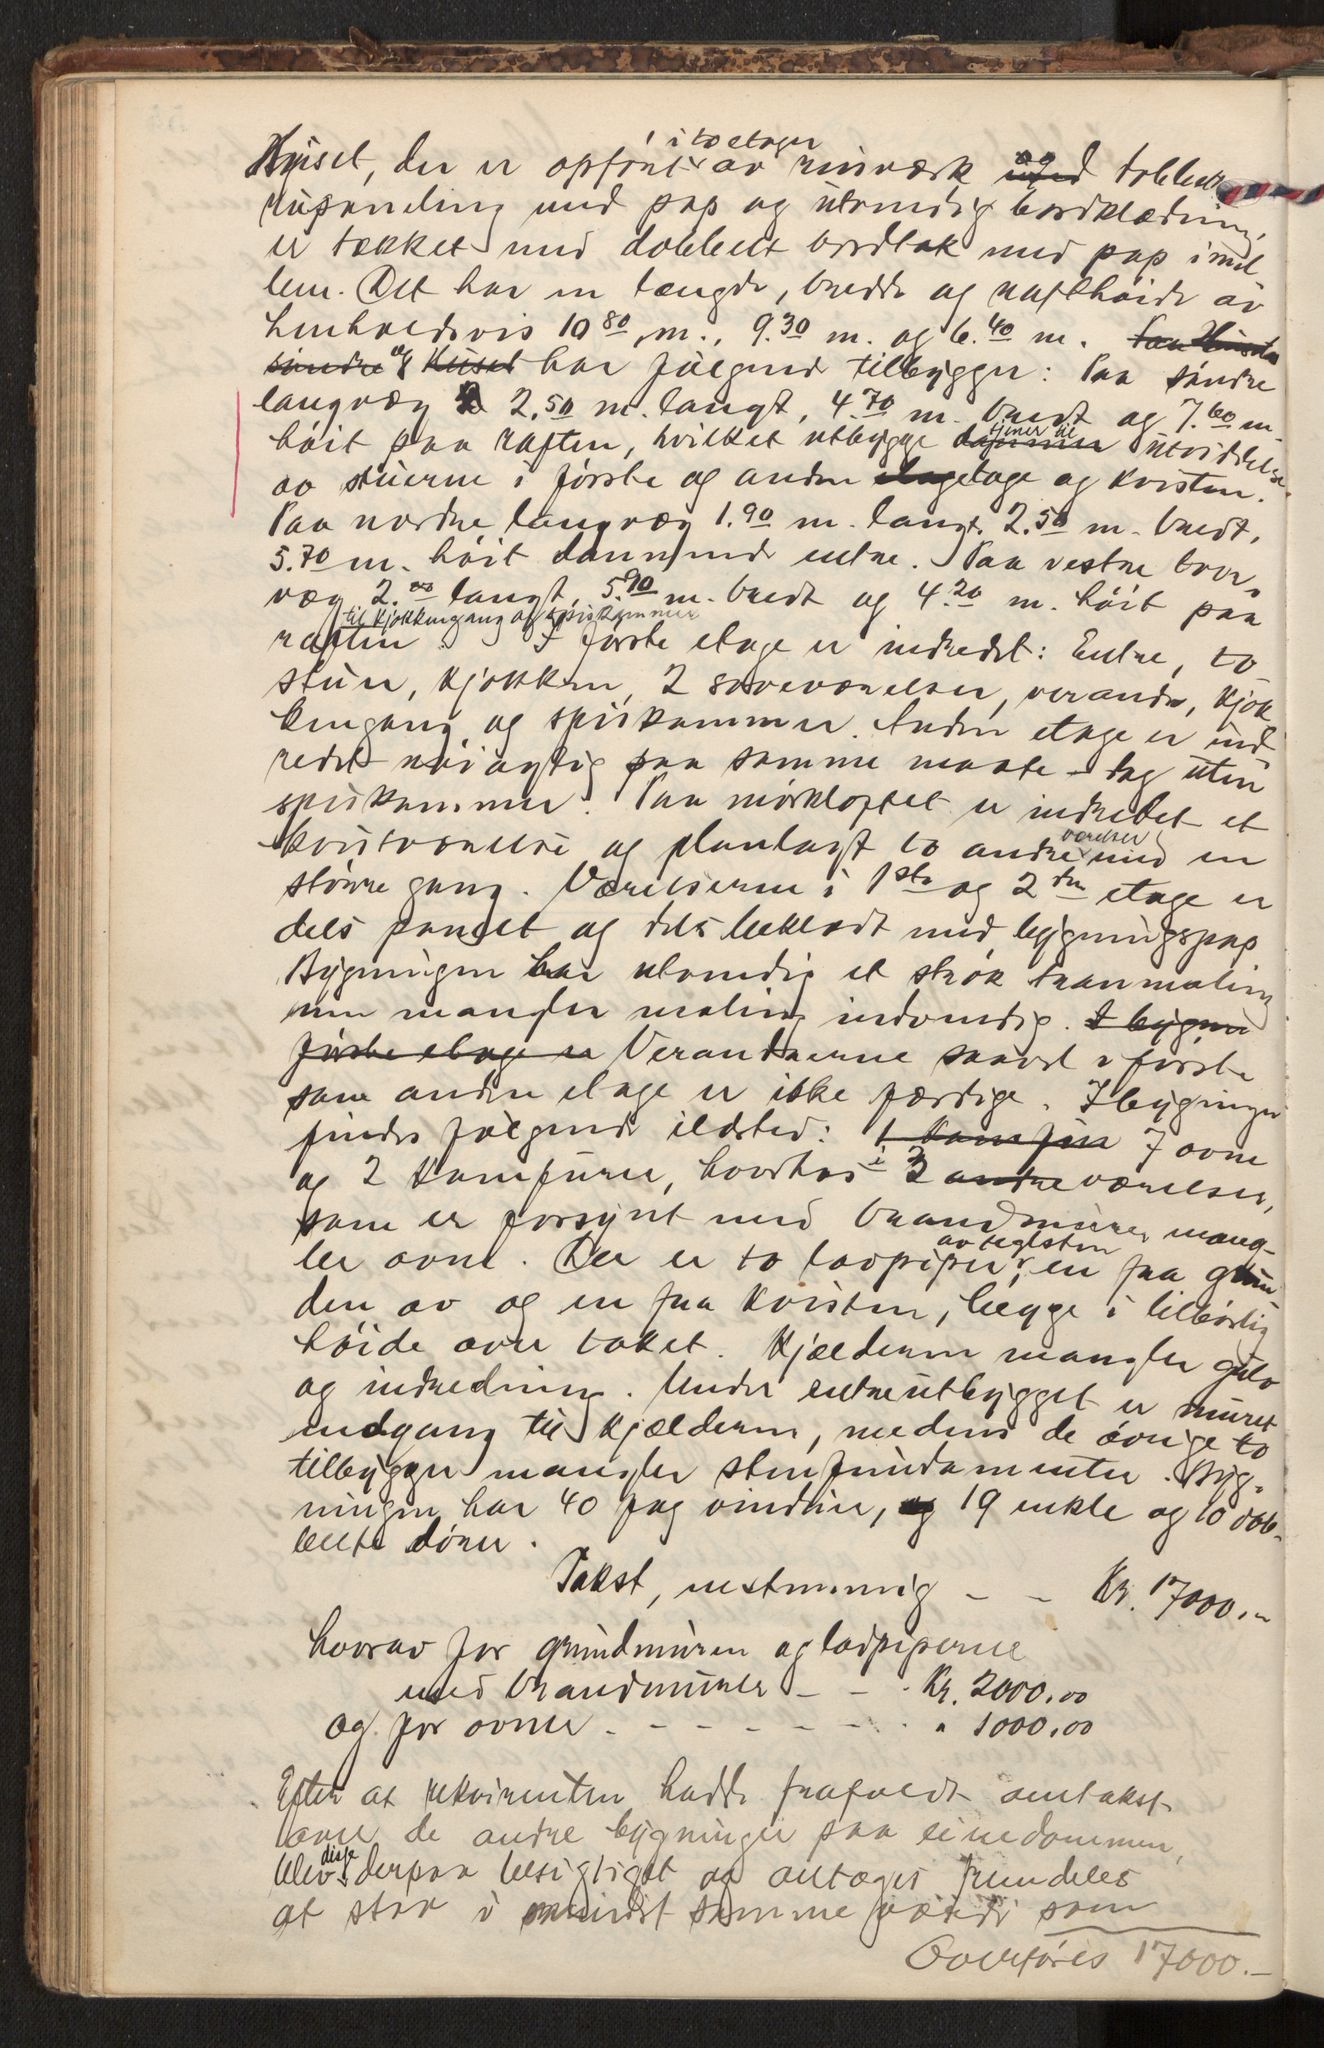 Huset, der er opført i to etager av reisværk og dobbelt
rupaneling med pap og utvendig bordklædning,
er tækket med dobbelt bordtak med pap imel-
lem. Det har en længde, bredde og rafthøide av
henholdsvis 10.80 m., 9.30 m. og 6.40 m. Paa Husets
søndre og Huset har følgende tilbygger: Paa søndre
langvæg 2.50 m. langt, 4.70 m. bredt og 7.60 m.
høit paa raften, hvilket utbygge tjener til utvidelse
av stuerne i første og anden etage og kvisten.
Paa nordre langvæg 1.90 m. langt, 2.50 m. bredt,
5.70 m. høit dannende entre. Paa vestre tver-
væg 2.00 langt, 5.90 m. bredt og 4.20 m. høit paa
raften til kjøkkengang og spiskammer. I første etage er indredet: Entre, to
stuer, kjøkken, 2 soveværelser, veranda, kjøk-
kengang og spiskammer. Anden etage er ind-
redet nøiagtig paa samme maate - dog uten
spiskammer. Paa mørkloftet er indredet et
kvistværelse og planlagt to andre værelser med en
større gang. Værelserne i 1ste og 2den etage er
dels panelt og dels beklædt med bygningspap
Bygningen har utvendig et strøk tranmaling
men mangler maling indvendig. I bygnin
første etage er Verandaerne saavel i første
som anden etage er ikke færdige. I bygningen
findes følgende ildsted: 1 komfur 7 ovne
og 2 komfurer, hvorhos i 3 andre værelser,
som er forsynt med brandmurer mang-
ler ovne. Der er to lovpiper av teglsten, en fra grun-
den av og en fra kvisten, begge i tilbørlig
høide over taket. Kjælderen mangler gulv
og indredning. Under entreutbygget er muret
indgang til kjælderen, medens de øvrige to
tilbygger mangler stenfundamenter. Byg-
ningen har 40 fag vinduer, og 19 enkle og 10 dob-
belte dører.
Takst, enstemmig - - Kr. 17000.-
hvorav for grundmuren og lovpiperne
med brandmurer - - Kr. 2000.00
og for ovner - - - - - - - " 1000.00
Efter at rekvirenten hadde frafaldt omtakst
over de andre bygninger paa eiendommen,
blev disse derpaa besigtiget og antages fremdeles
at staa i mindst samme værdi som
Overføres 17000.-